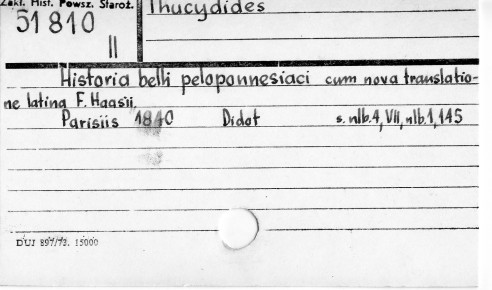 Zakł. Hist. Powsz. Staroż.
Thucydides
51 810
II
Historia belli peloponnesiaci cum nova translatio-
ne latina F. Haasii,
Parisiis 1840 Didot s. nlb. 4, VII, nlb. 1, 145
DUJ 897/72. 15000